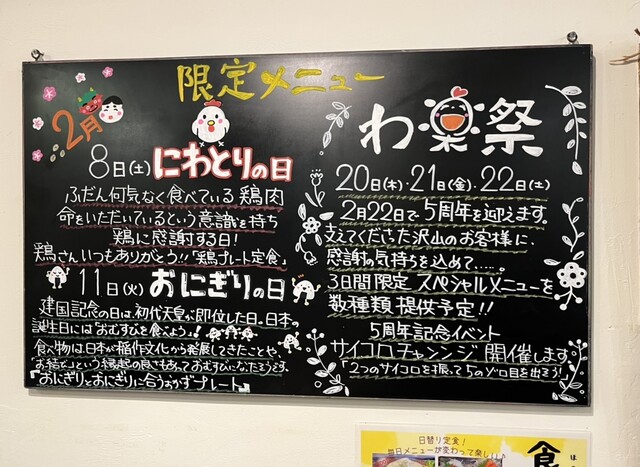 限定メニュー
2月
8日(土) にわとりの日
ふだん何気なく食べている鶏肉
命をいただいているという意識を持ち
鶏に感謝する日!
鶏さんいつもありがとう!!「鶏プレート定食」
11日(火) おにぎりの日
建国記念の日は、初代天皇が即位した日、日本の
誕生日には"おむすびを食べよう"!
食べ物は日本が稲作文化から発展してきたことや、
お結びという縁起の良さもあっておむすびになったそうです。
『おにぎりとおにぎりに合うおかずプレート』
わ楽祭
20日(木)・21日(金)・22日(土)
2月22日で5周年を迎えます。
支えてくださった沢山のお客様に、
感謝の気持ちを込めて‥‥。
3日間限定スペシャルメニューを
数種類提供予定!!
5周年記念イベント
サイコロチャンンジ開催します。
「2つのサイコロを振って5のゾロ目を出そう!」
日替り定食!
毎日メニューが変わって楽しい♪
食